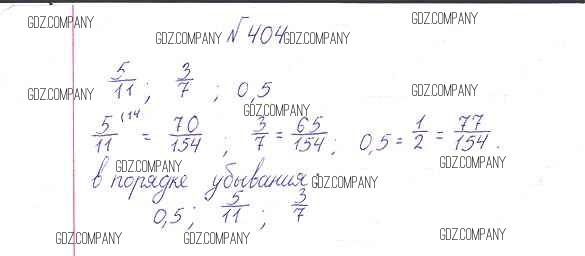 GDZ.COMPANY GDZ.COMPANY № 404 GDZ.COMPANY GDZ.COMPANY
GDZ.COMPANY 5/11 ; 3/7 ; 0,5 GDZ.COMPANY
GDZ.COMPANY
5/11 (14 = 70/154 ; 3/7 = 65/154 ; 0,5 = 1/2 = 77/154 .
GDZ.COMPANY GDZ.COMPANY
в порядке убывания GDZ.COMPANY
0,5 ; 5/11 ; 3/7
GDZ.COMPANY GDZ.COMPANY GDZ.COMPANY